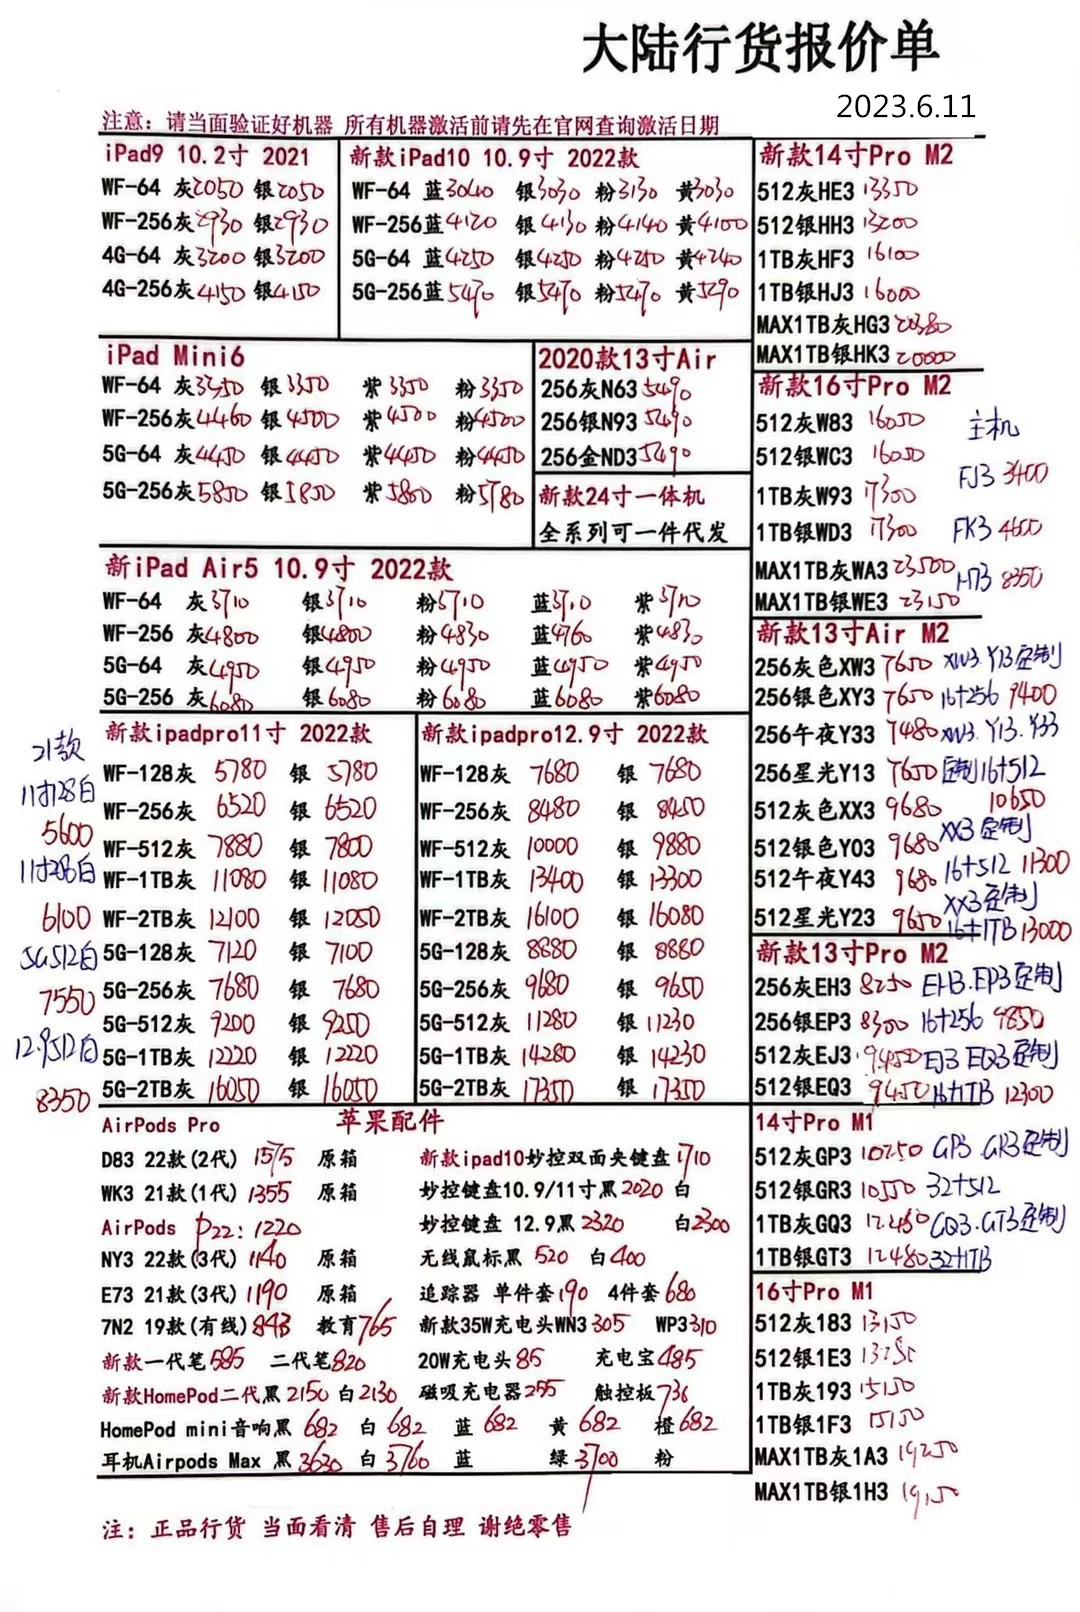 大陆行货报价单
2023.6.11
注意：请当面验证好机器 所有机器激活前请先在官网查询激活日期
iPad9 10.2寸 2021
WF-64 灰2050 银2050
WF-256灰2930 银2930
4G-64 灰3200 银3200
4G-256灰4150 银4150
新款iPad10 10.9寸 2022款
WF-64 蓝3040 银3030 粉3130 黄3030
WF-256蓝4120 银4130 粉4140 黄4100
5G-64 蓝4250 银4250 粉4250 黄4240
5G-256蓝5470 银5470 粉5470 黄5290
iPad Mini6
WF-64 灰3450 银3350 紫3350 粉3350
WF-256灰4460 银4500 紫4500 粉4500
5G-64 灰4450 银4450 紫4450 粉4450
5G-256灰5800 银5850 紫5800 粉5780
2020款13寸Air
256灰N63 5490
256银N93 5490
256金ND3 5490
新款24寸一体机
全系列可一件代发
新iPad Air5 10.9寸 2022款
WF-64 灰3710 银3710 粉3710 蓝3710 紫3710
WF-256 灰4800 银4800 粉4830 蓝4760 紫4830
5G-64 灰4950 银4950 粉4950 蓝4950 紫4950
5G-256 灰6080 银6080 粉6080 蓝6080 紫6080
21款
11寸128白
5600
11寸256白
6100
5G512白
7550
12.9512白
8350
新款ipadpro11寸 2022款
WF-128灰 5780 银 5780
WF-256灰 6520 银 6520
WF-512灰 7880 银 7800
WF-1TB灰 11080 银 11080
WF-2TB灰 12100 银 12050
5G-128灰 7120 银 7100
5G-256灰 7680 银 7680
5G-512灰 9200 银 9250
5G-1TB灰 12220 银 12220
5G-2TB灰 16050 银 16050
新款ipadpro12.9寸 2022款
WF-128灰 7680 银 7680
WF-256灰 8480 银 8450
WF-512灰 10000 银 9880
WF-1TB灰 13400 银 13300
WF-2TB灰 16100 银 16080
5G-128灰 8880 银 8880
5G-256灰 9680 银 9650
5G-512灰 11280 银 11230
5G-1TB灰 14280 银 14230
5G-2TB灰 17350 银 17350
AirPods Pro 苹果配件
D83 22款(2代) 1575 原箱
WK3 21款(1代) 1355 原箱
AirPods P22: 1220
NY3 22款(3代) 1140 原箱
E73 21款(3代) 1190 原箱
7N2 19款(有线) 843 教育765
新款一代笔585 二代笔820
新款HomePod二代黑2150 白2130
HomePod mini音响黑 682 白 682 蓝 682 黄 682 橙682
耳机Airpods Max 黑 3630 白 3760 蓝 绿 3700 粉
新款ipad10妙控双面夹键盘1710
妙控键盘10.9/11寸黑2020 白
妙控键盘 12.9黑2320 白2300
无线鼠标黑 520 白400
追踪器 单件套190 4件套680
新款35W充电头WN3 305 WP3310
20W充电头85 充电宝485
磁吸充电器255 触控板736
新款14寸Pro M2
512灰HE3 13350
512银HH3 13200
1TB灰HF3 16100
1TB银HJ3 16000
MAX1TB灰HG3 20380
MAX1TB银HK3 20000
新款16寸Pro M2
512灰W83 16050
512银WC3 16050
1TB灰W93 17300
1TB银WD3 17300
MAX1TB灰WA3 23500
MAX1TB银WE3 23150
主机
FJ3 3400
FK3 4600
H73 8350
新款13寸Air M2
256灰色XW3 7650 XW3.Y13定制
256银色XY3 7650 16+256 9400
256午夜Y33 7480 XW3.Y13.Y33
256星光Y13 7650 定制16+512
512灰色XX3 9680 10650
512银色Y03 9680 XX3定制
512午夜Y43 9680 16+512 11300
512星光Y23 9650 XX3定制
16+1TB 13000
新款13寸Pro M2
256灰EH3 8250 EH3.EP3定制
256银EP3 8300 16+256 9850
512灰EJ3 9450 EJ3 EQ3定制
512银EQ3 9450 16+1TB 12300
14寸Pro M1
512灰GP3 10250 GP3.GR3定制
512银GR3 10550 32+512
1TB灰GQ3 12480 GQ3.GT3定制
1TB银GT3 12480 32+1TB
16寸Pro M1
512灰183 13150
512银1E3
1TB灰193 15150
1TB银1F3 15150
MAX1TB灰1A3 19250
MAX1TB银1H3 19150
注：正品行货 当面看清 售后自理 谢绝零售